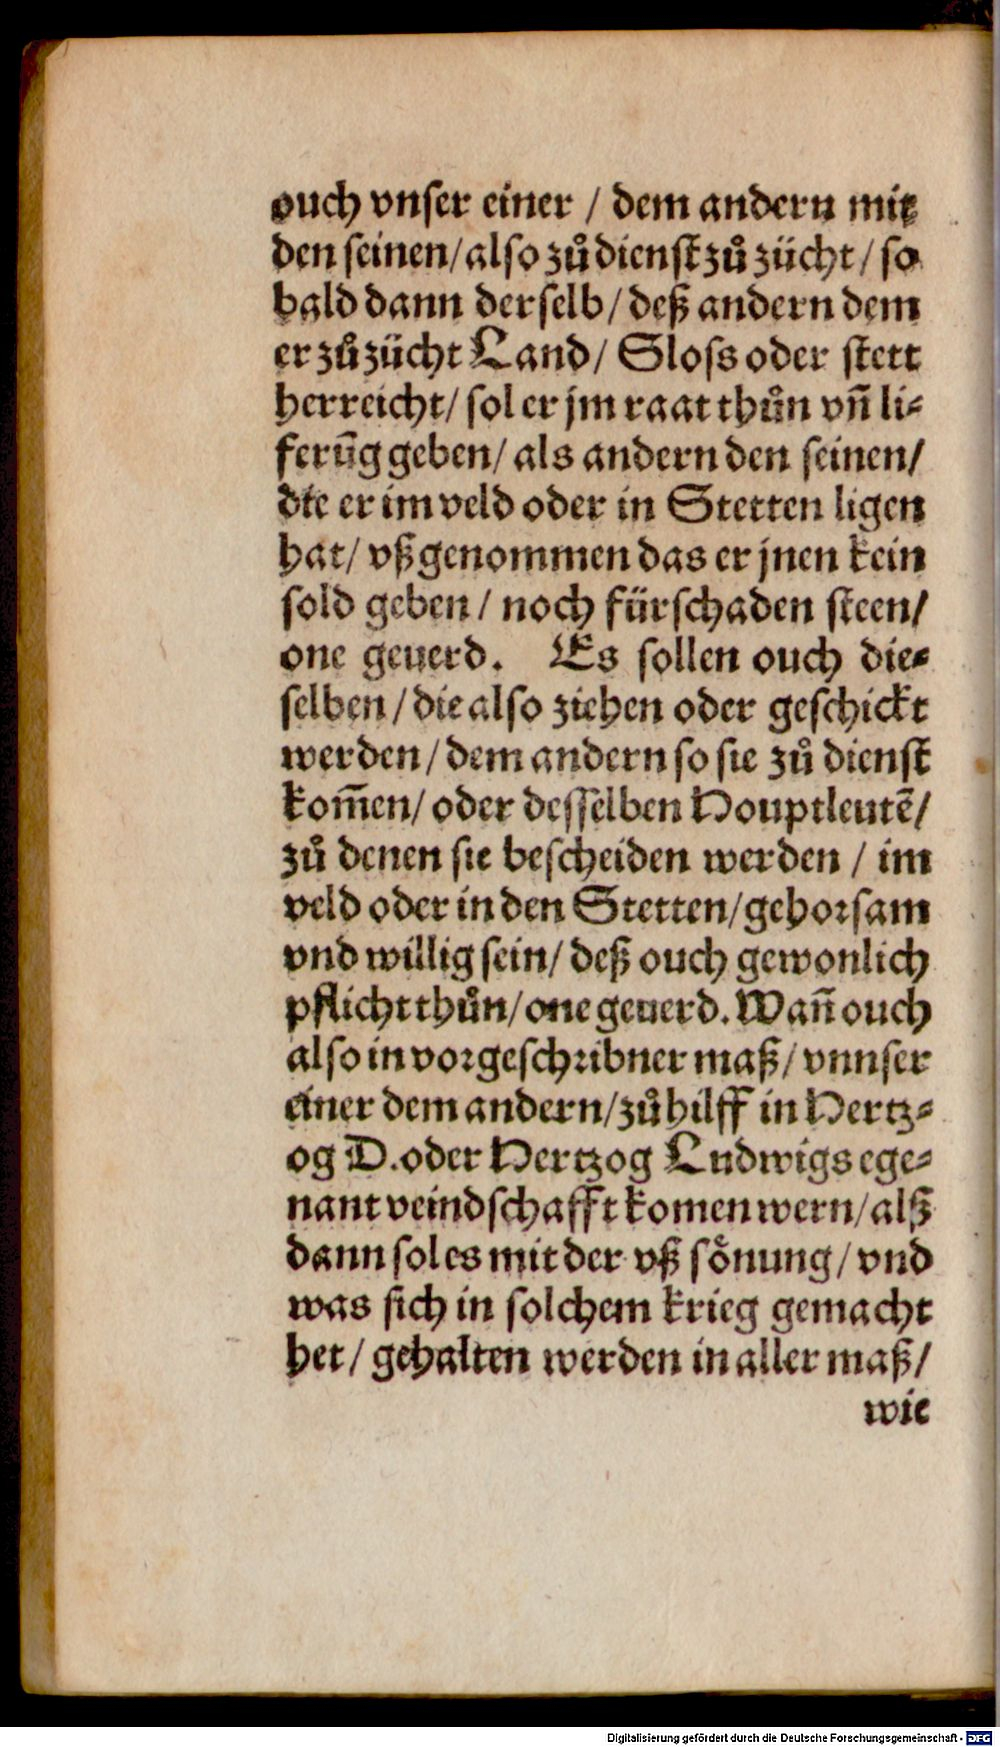 ouch vnser einer / dem andern mit
den seinen/also zů dienst zů zücht/ so
bald dann derselb/ deß andern dem
er zů zücht Land/ Sloss oder stett
herreicht/ sol er jm raat thůn vñ li⸗
ferūg geben/ als andern den seinen/
die er im veld oder in Stetten ligen
hat/ vßgenommen das er jnen kein
sold geben/ noch fürschaden steen/
one geuerd. Es sollen ouch die⸗
selben/die also ziehen oder geschickt
werden/dem andern so sie zů dienst
kom̄en/ oder desselben Houptleutē/
zů denen sie bescheiden werden / im
veld oder in den Stetten/gehorsam
vnd willig sein/ deß ouch gewonlich
pflicht thůn/one geuerd. Wañ ouch
also in vorgeschribner maß/ vnnser
einer dem andern/zů hilff in Hertz⸗
og D. oder Hertzog Lndwigs ege⸗
nant veindschafft komen wern/alß
dann sol es mit der vß sönung/vnd
was sich in solchem krieg gemacht
het/ gehalten werden in aller maß/
wie
Digitalisierung gefördert durch die Deutsche Forschungsgemeinschaft - DFG